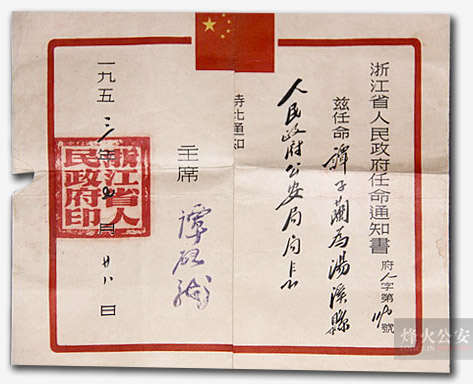 浙江省人民政府任命通知書
府人字第號
茲任命 子蘭為湯溪縣
人民政府公安局局長
特此通知
主席 譚啟龍
一九五三年月廿八日
浙江省人民政府印
烽火公安